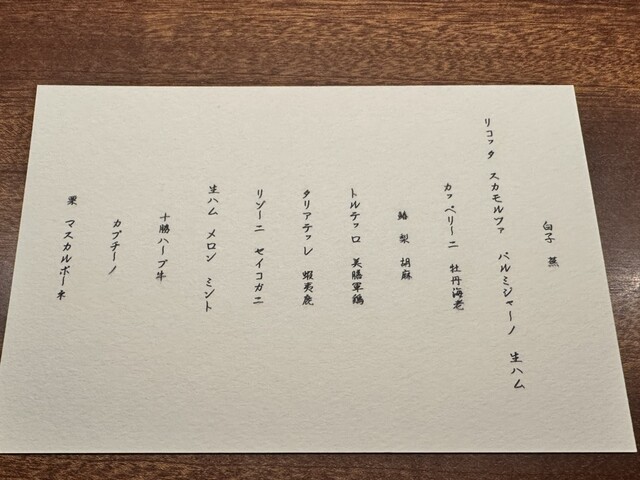 白子 蕪
リコッタ スカモルツァ パルミジャーノ 生ハム
カッペリーニ 牡丹海老
鰆 梨 胡麻
トルテッロ 美膳軍鶏
タリアテッレ 蝦夷鹿
リゾーニ セイコガニ
生ハム メロン ミント
十勝ハーブ牛
カプチーノ
栗 マスカルポーネ